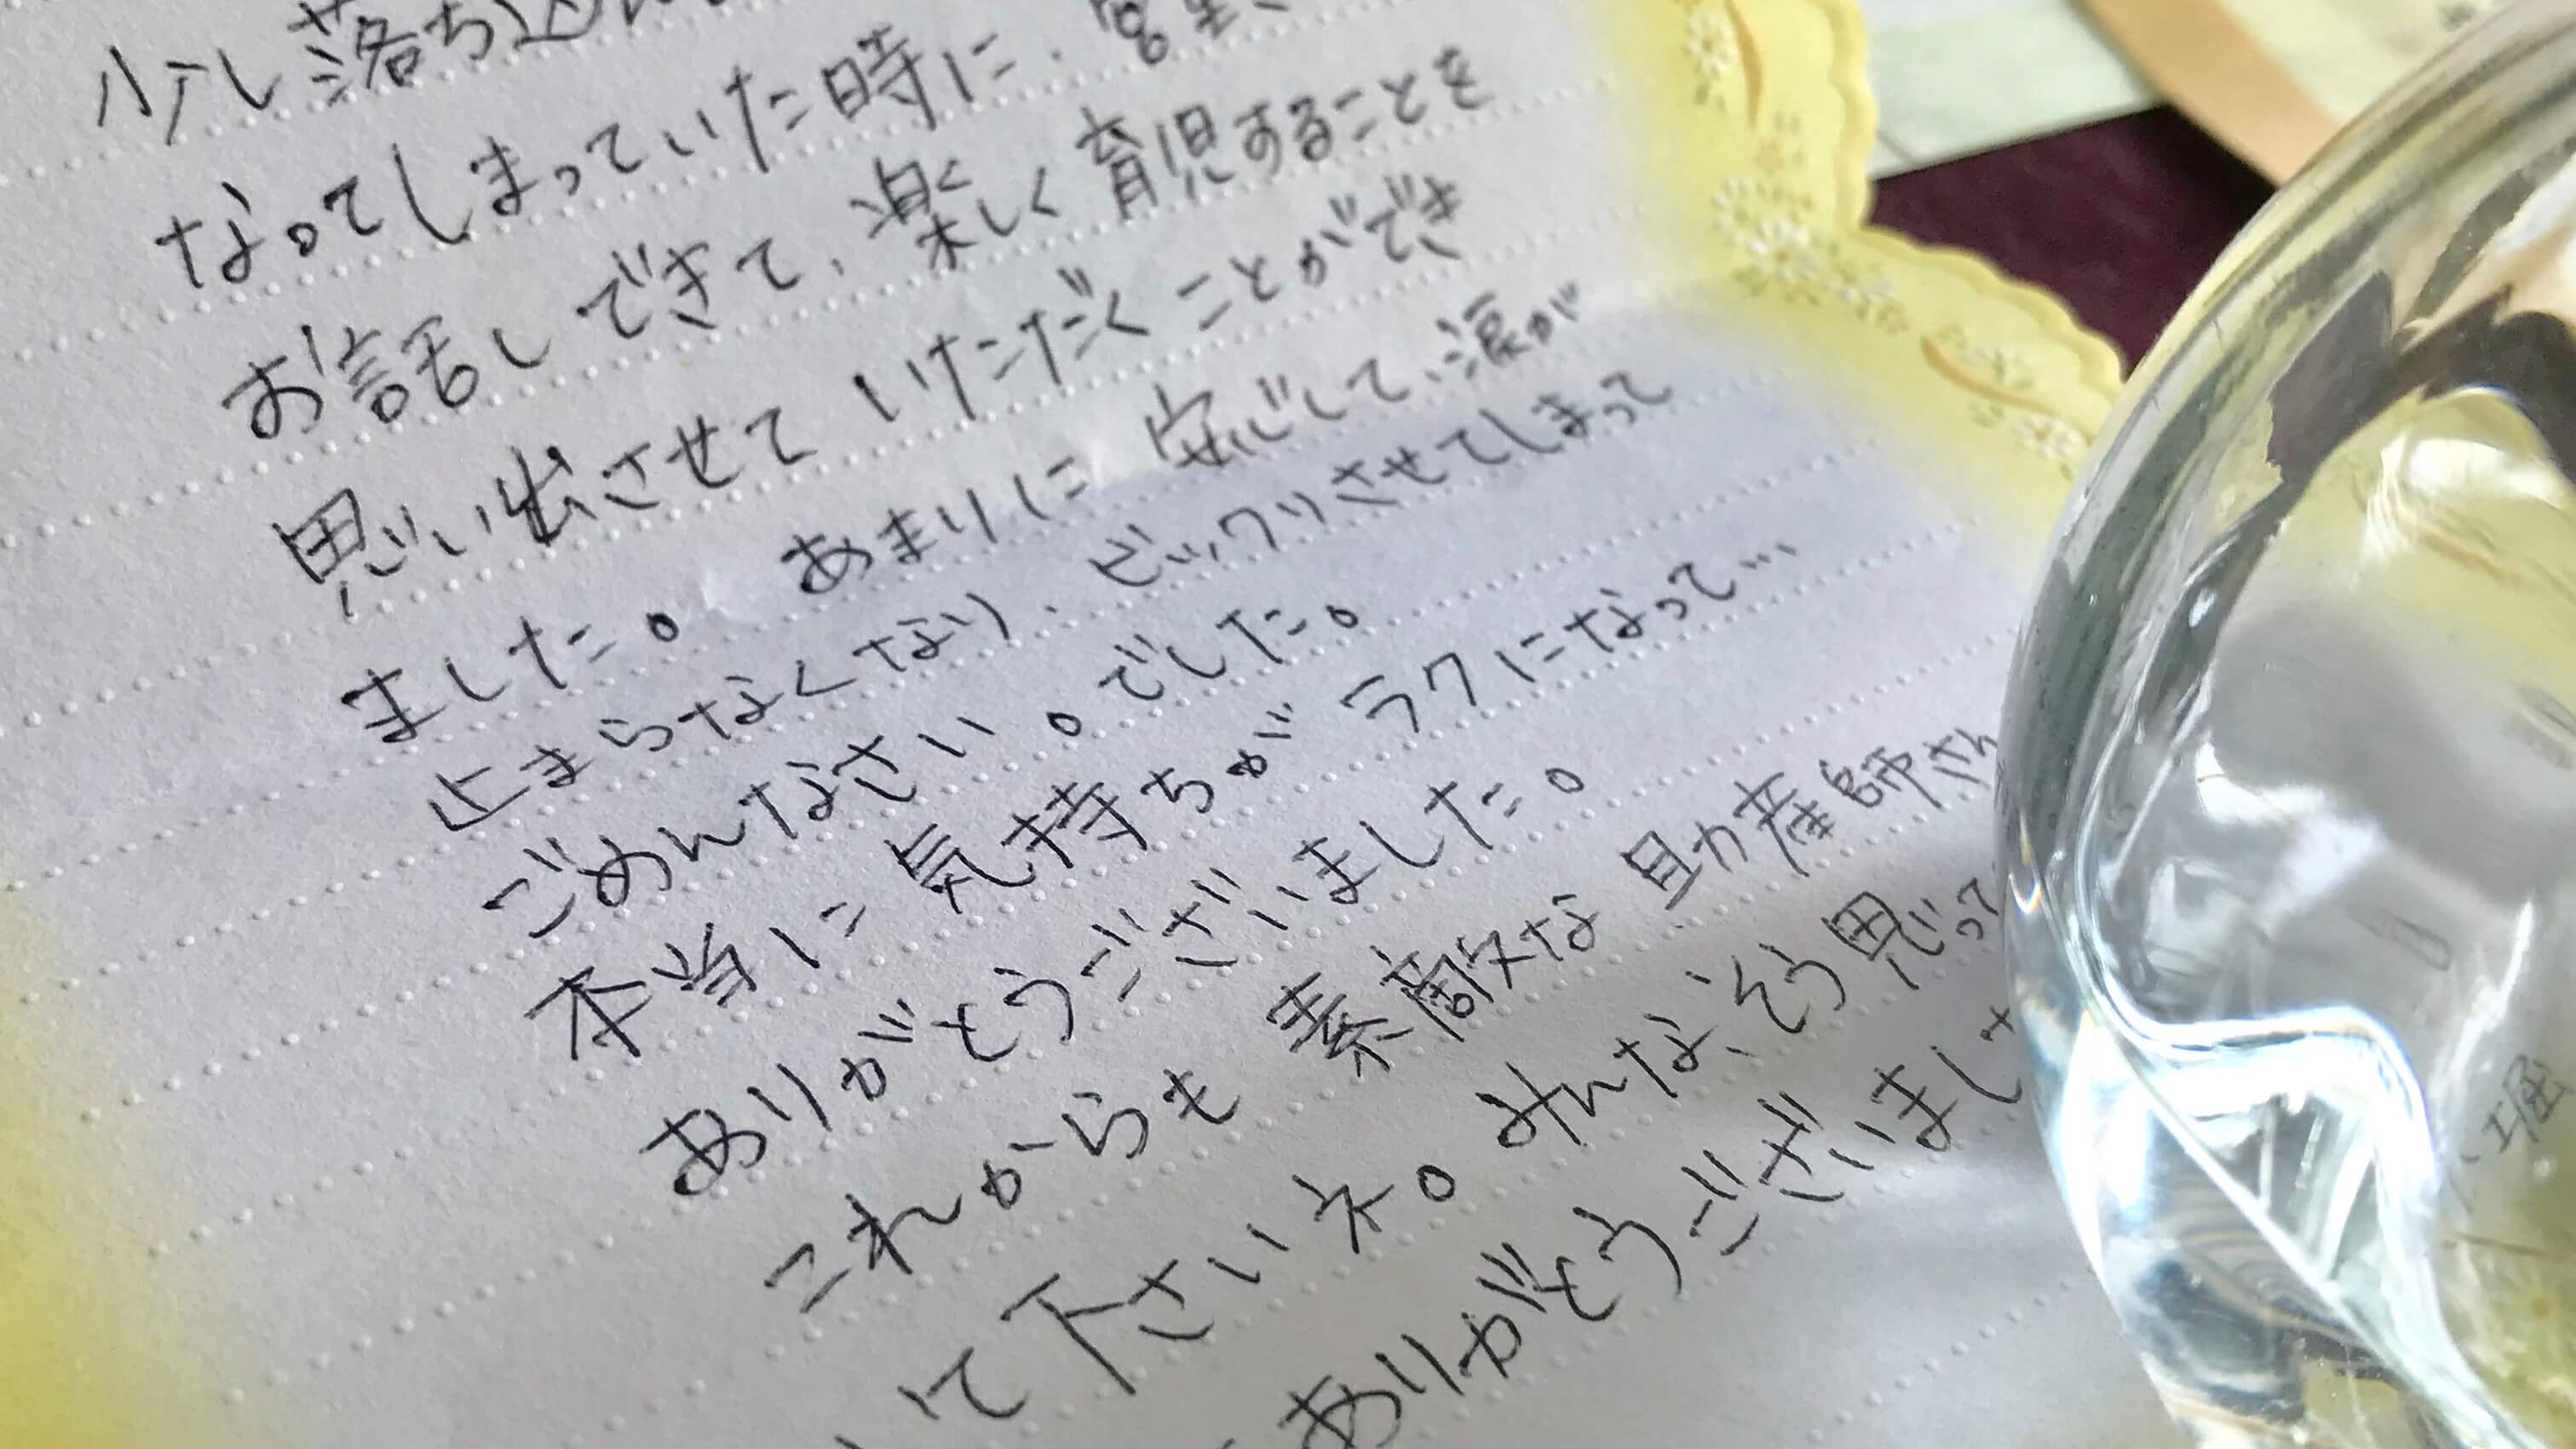 少し落ち込ん
なってしまっていた時に、
お話しできて、楽しく育児することを
思い出させていただくことができ
ました。あまりに安心して、涙が
止まらなくなり、ビックリさせてしまって
ごめんなさい。でした。
本当に気持ちがラクになって…
ありがとうございました。
これからも素敵な助産師さん
いて下さいネ。みんな、そう思って
ありがとうございまし
堀